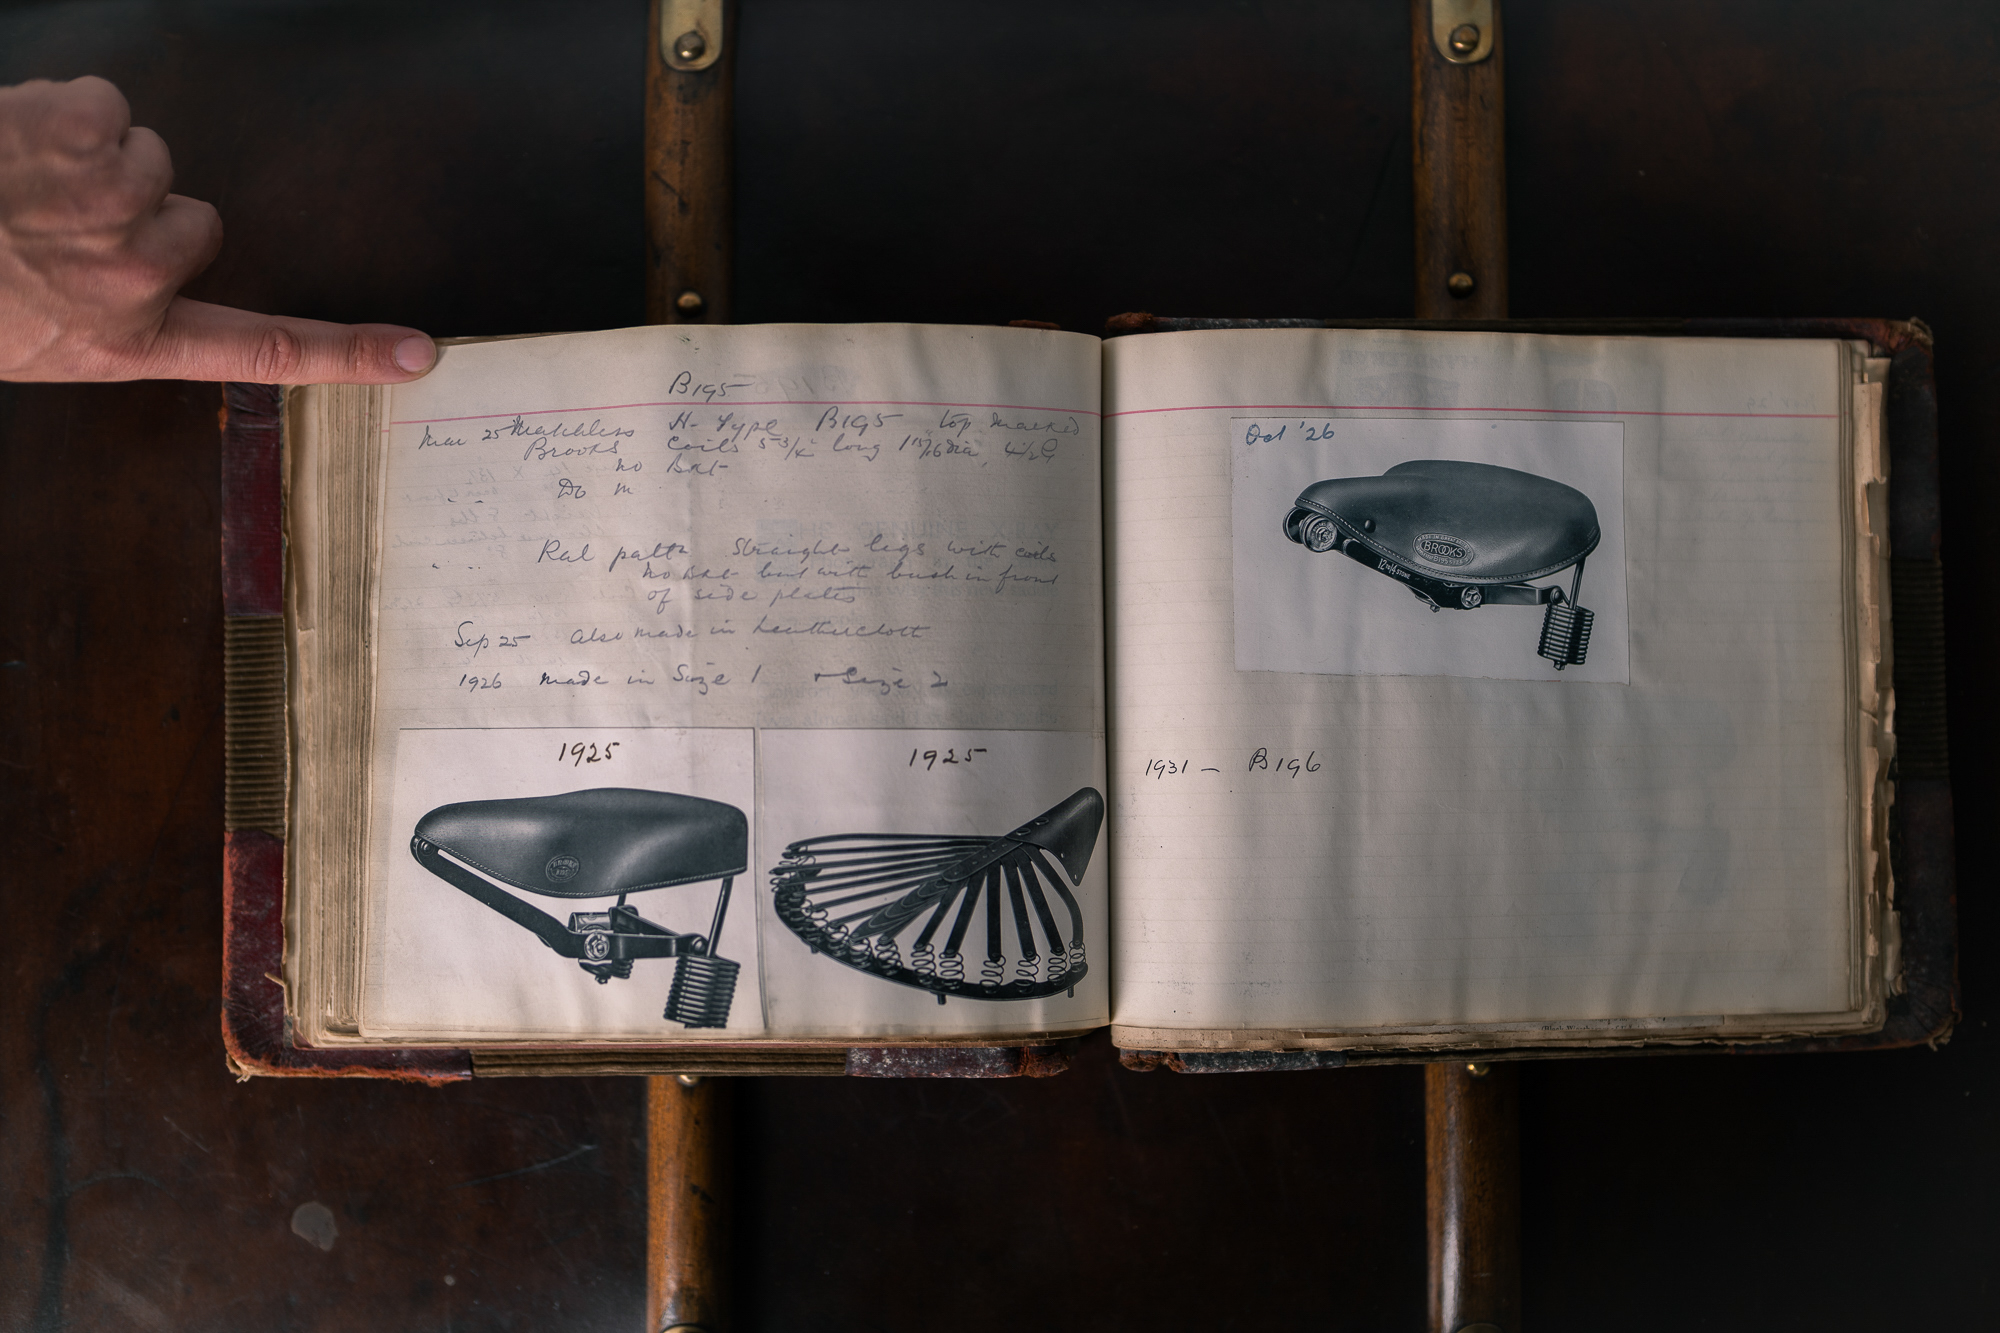 B195
Mar 25 Matchless H-Type B195 top marked
Brooks Coils 5 3/4" long 1 15/16 dia, 4 1/2 G
no Bkt
Do
Straight legs with coils
no Bkt but with bush in front
of side plates
Sep 25 also made in Leathercloth
1926 made in Size 1 + Size 2
1925
1925
BROOKS
Oct '26
BROOKS
12 to 14 STONE
1931 – B196